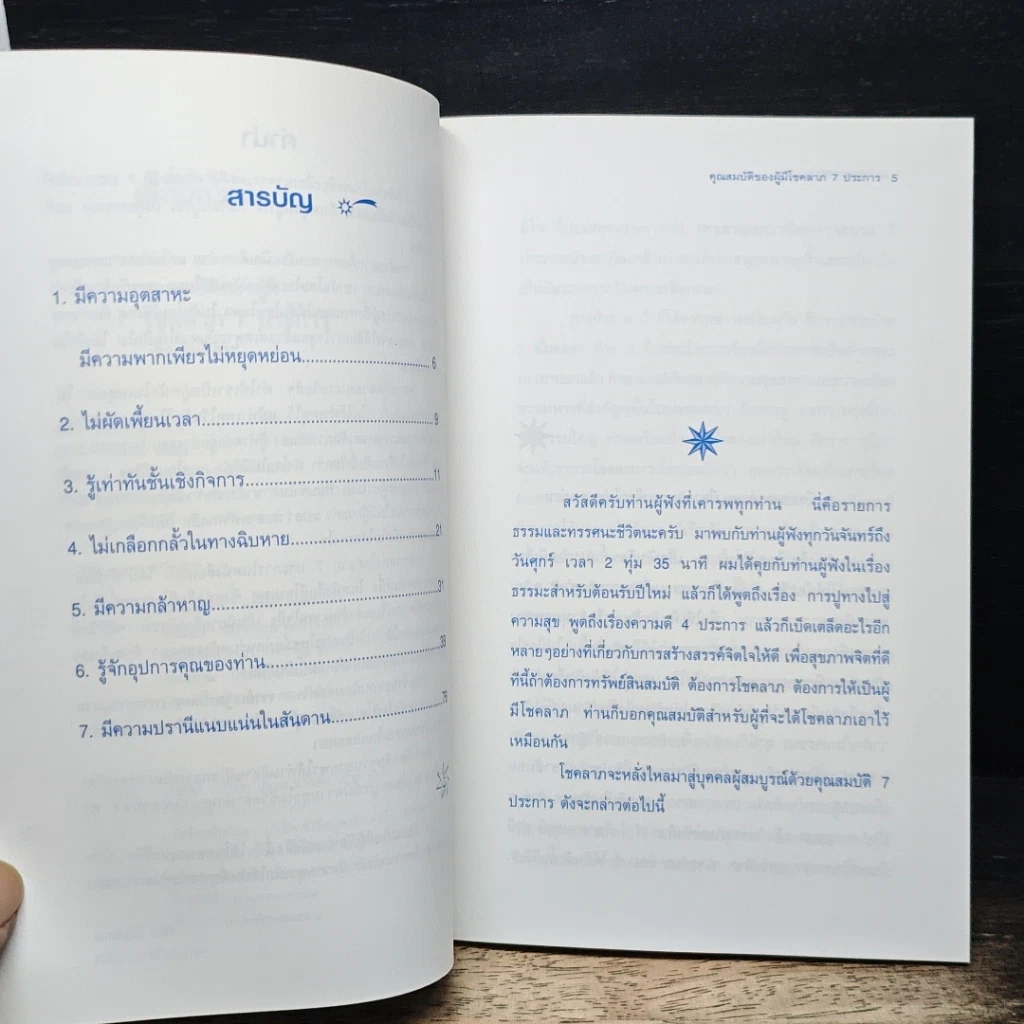 สารบัญ
1. มีความอุตสาหะ
มีความพากเพียรไม่หยุดหย่อน.................................. 6
2. ไม่ผัดเพี้ยนเวลา.......................................................... 9
3. รู้เท่าทันชั้นเชิงกิจการ................................................11
4. ไม่เกลือกกลั้วในทางฉิบหาย.....................................21
5. มีความกล้าหาญ.........................................................31
6. รู้จักอุปการคุณของท่าน............................................38
7. มีความปรานีแนบแน่นในสันดาน............................76
คุณสมบัติของผู้มีโชคลาภ 7 ประการ 5
สวัสดีครับท่านผู้ฟังที่เคารพทุกท่าน นี่คือรายการ
ธรรมและทรรศนะชีวิตนะครับ มาพบกับท่านผู้ฟังทุกวันจันทร์ถึง
วันศุกร์ เวลา 2 ทุ่ม 35 นาที ผมได้คุยกับท่านผู้ฟังในเรื่อง
ธรรมะสำหรับต้อนรับปีใหม่ แล้วก็ได้พูดถึงเรื่อง การปูทางไปสู่
ความสุข พูดถึงเรื่องความดี 4 ประการ แล้วก็เบ็ดเตล็ดอะไรอีก
หลายๆอย่างที่เกี่ยวกับการสร้างสรรค์จิตใจให้ดี เพื่อสุขภาพจิตที่ดี
ทีนี้ถ้าต้องการทรัพย์สินสมบัติ ต้องการโชคลาภ ต้องการให้เป็นผู้
มีโชคลาภ ท่านก็บอกคุณสมบัติสำหรับผู้ที่จะได้โชคลาภเอาไว้
เหมือนกัน
โชคลาภจะหลั่งไหลมาสู่บุคคลผู้สมบูรณ์ด้วยคุณสมบัติ 7
ประการ ดังจะกล่าวต่อไปนี้